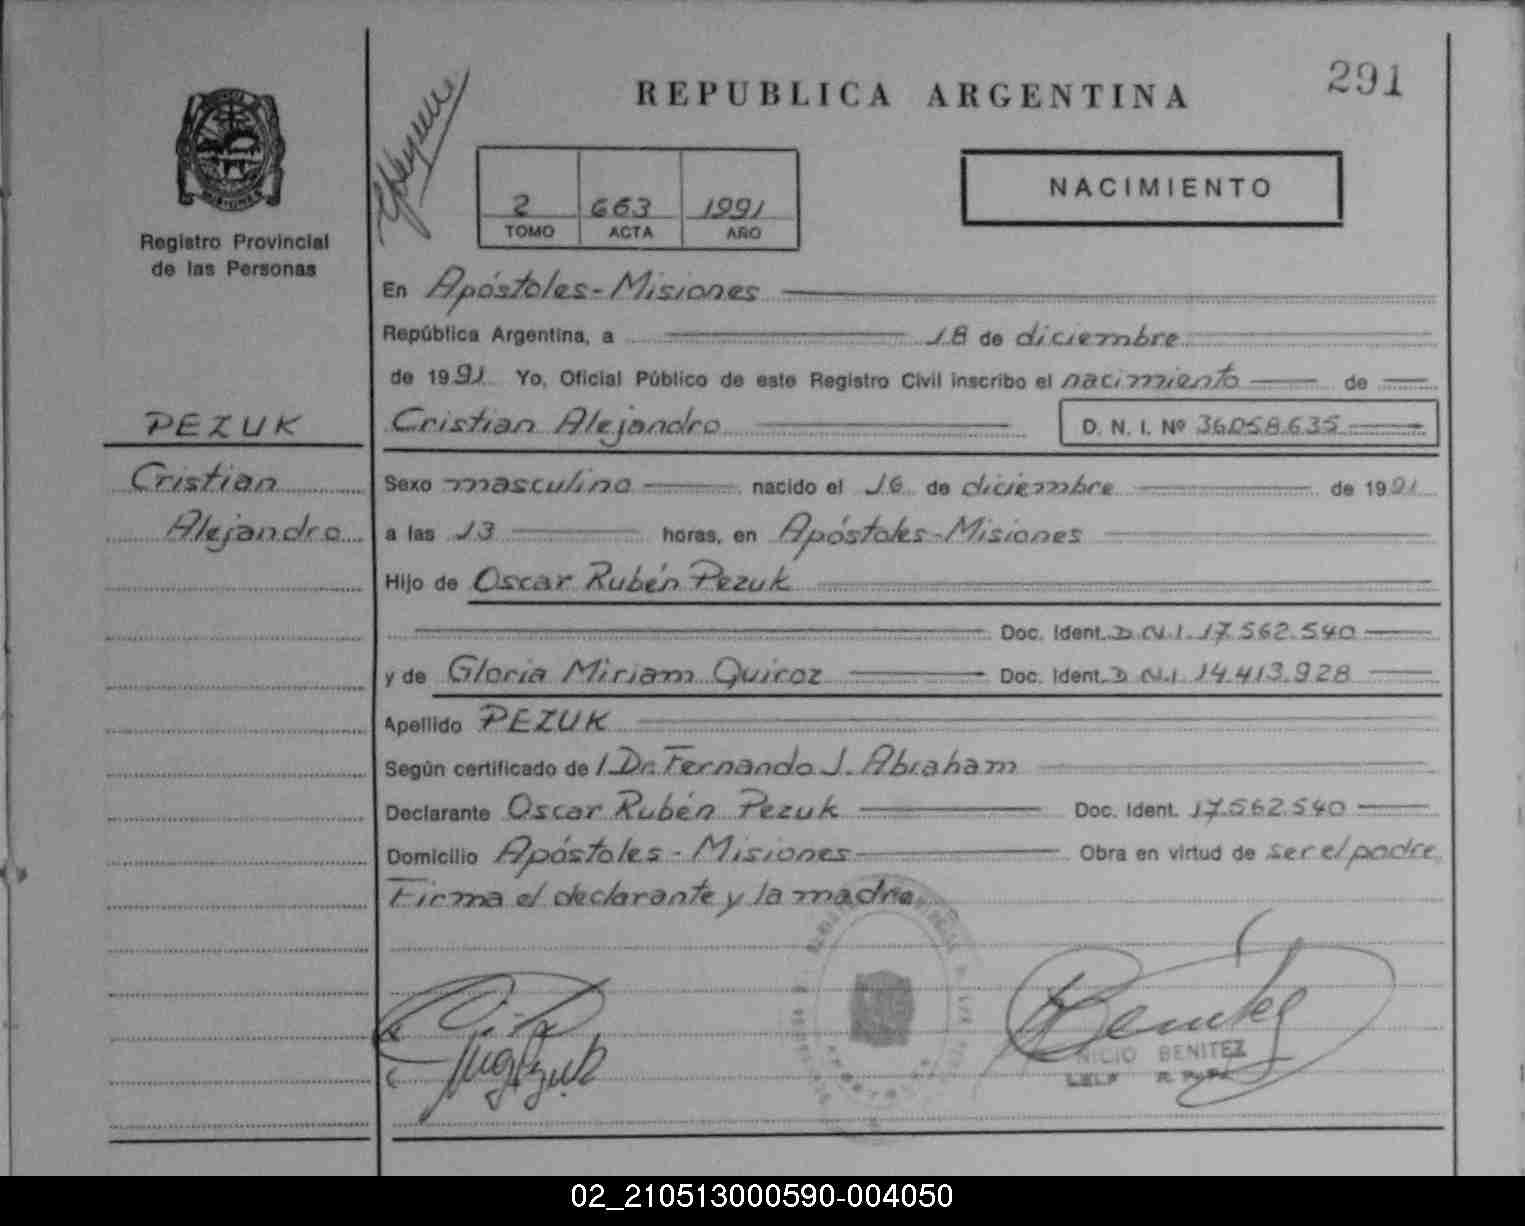 291
REPUBLICA ARGENTINA
NACIMIENTO
2 663 1991
TOMO ACTA AÑO
Registro Provincial
de las Personas
PEZUK
Cristian
Alejandro
En Apóstoles - Misiones
República Argentina, a 18 de diciembre
de 1991 Yo, Oficial Público de este Registro Civil inscribo el nacimiento de
Cristian Alejandro D. N. I. Nº 36.058.635
Sexo masculino nacido el 16 de diciembre de 1991
a las 13 horas, en Apóstoles - Misiones
Hijo de Oscar Rubén Pezuk
Doc. Ident. D.N.I. 17.562.540
y de Gloria Miriam Quiroz Doc. Ident. D.N.I. 14.413.928
Apellido PEZUK
Según certificado de / Dr. Fernando J. Abraham
Declarante Oscar Rubén Pezuk Doc. Ident. 17.562.540
Domicilio Apóstoles - Misiones Obra en virtud de ser el padre
Firma el declarante y la madre
BENITEZ
02_210513000590-004050